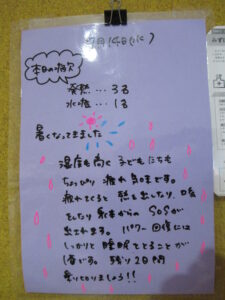 7月14日(火)
本日の病欠
発熱…3名
水痘…1名
暑くなってきました
湿度も高く子どもたちも
ちょっぴり疲れ気味です。
疲れてくると熱を出したり、
をしたり 体からのSOSが
出されます。パワー回復には
しっかりと睡眠をとることが
1番です。残り2日間
乗りきりましょう!!
みず